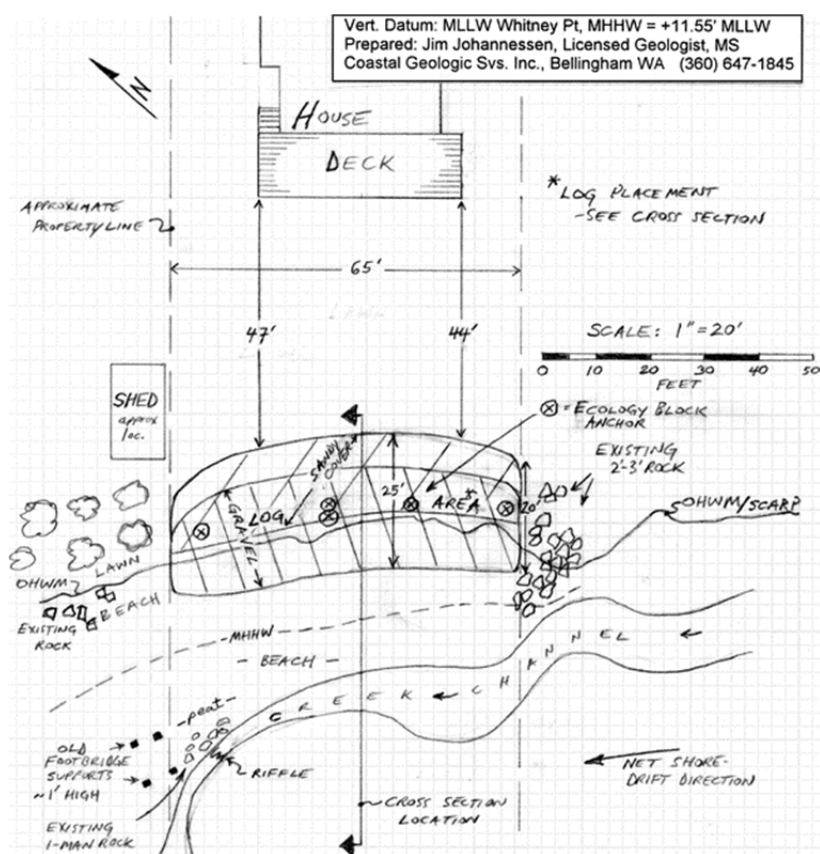 Vert. Datum: MLLW Whitney Pt, MHHW = +11.55' MLLW
Prepared: Jim Johannessen, Licensed Geologist, MS
Coastal Geologic Svs. Inc., Bellingham WA (360) 647-1845
N
HOUSE
DECK
*LOG PLACEMENT
-SEE CROSS SECTION
APPROXIMATE
PROPERTY LINE
65'
47'
44'
SCALE: 1"=20'
0 10 20 30 40 50
FEET
SHED
approx
loc.
⊗ = ECOLOGY BLOCK
ANCHOR
EXISTING
2'-3' ROCK
SANDY COVER
25'
LOG
AREA*
20'
GRAVEL
OHWM/SCARP
LAWN
OHWM
BEACH
EXISTING
ROCK
MHHW
-BEACH-
CREEK CHANNEL
-peat-
OLD
FOOTBRIDGE
SUPPORTS
~1' HIGH
RIFFLE
NET SHORE-
DRIFT DIRECTION
CROSS SECTION
LOCATION
EXISTING
1-MAN ROCK